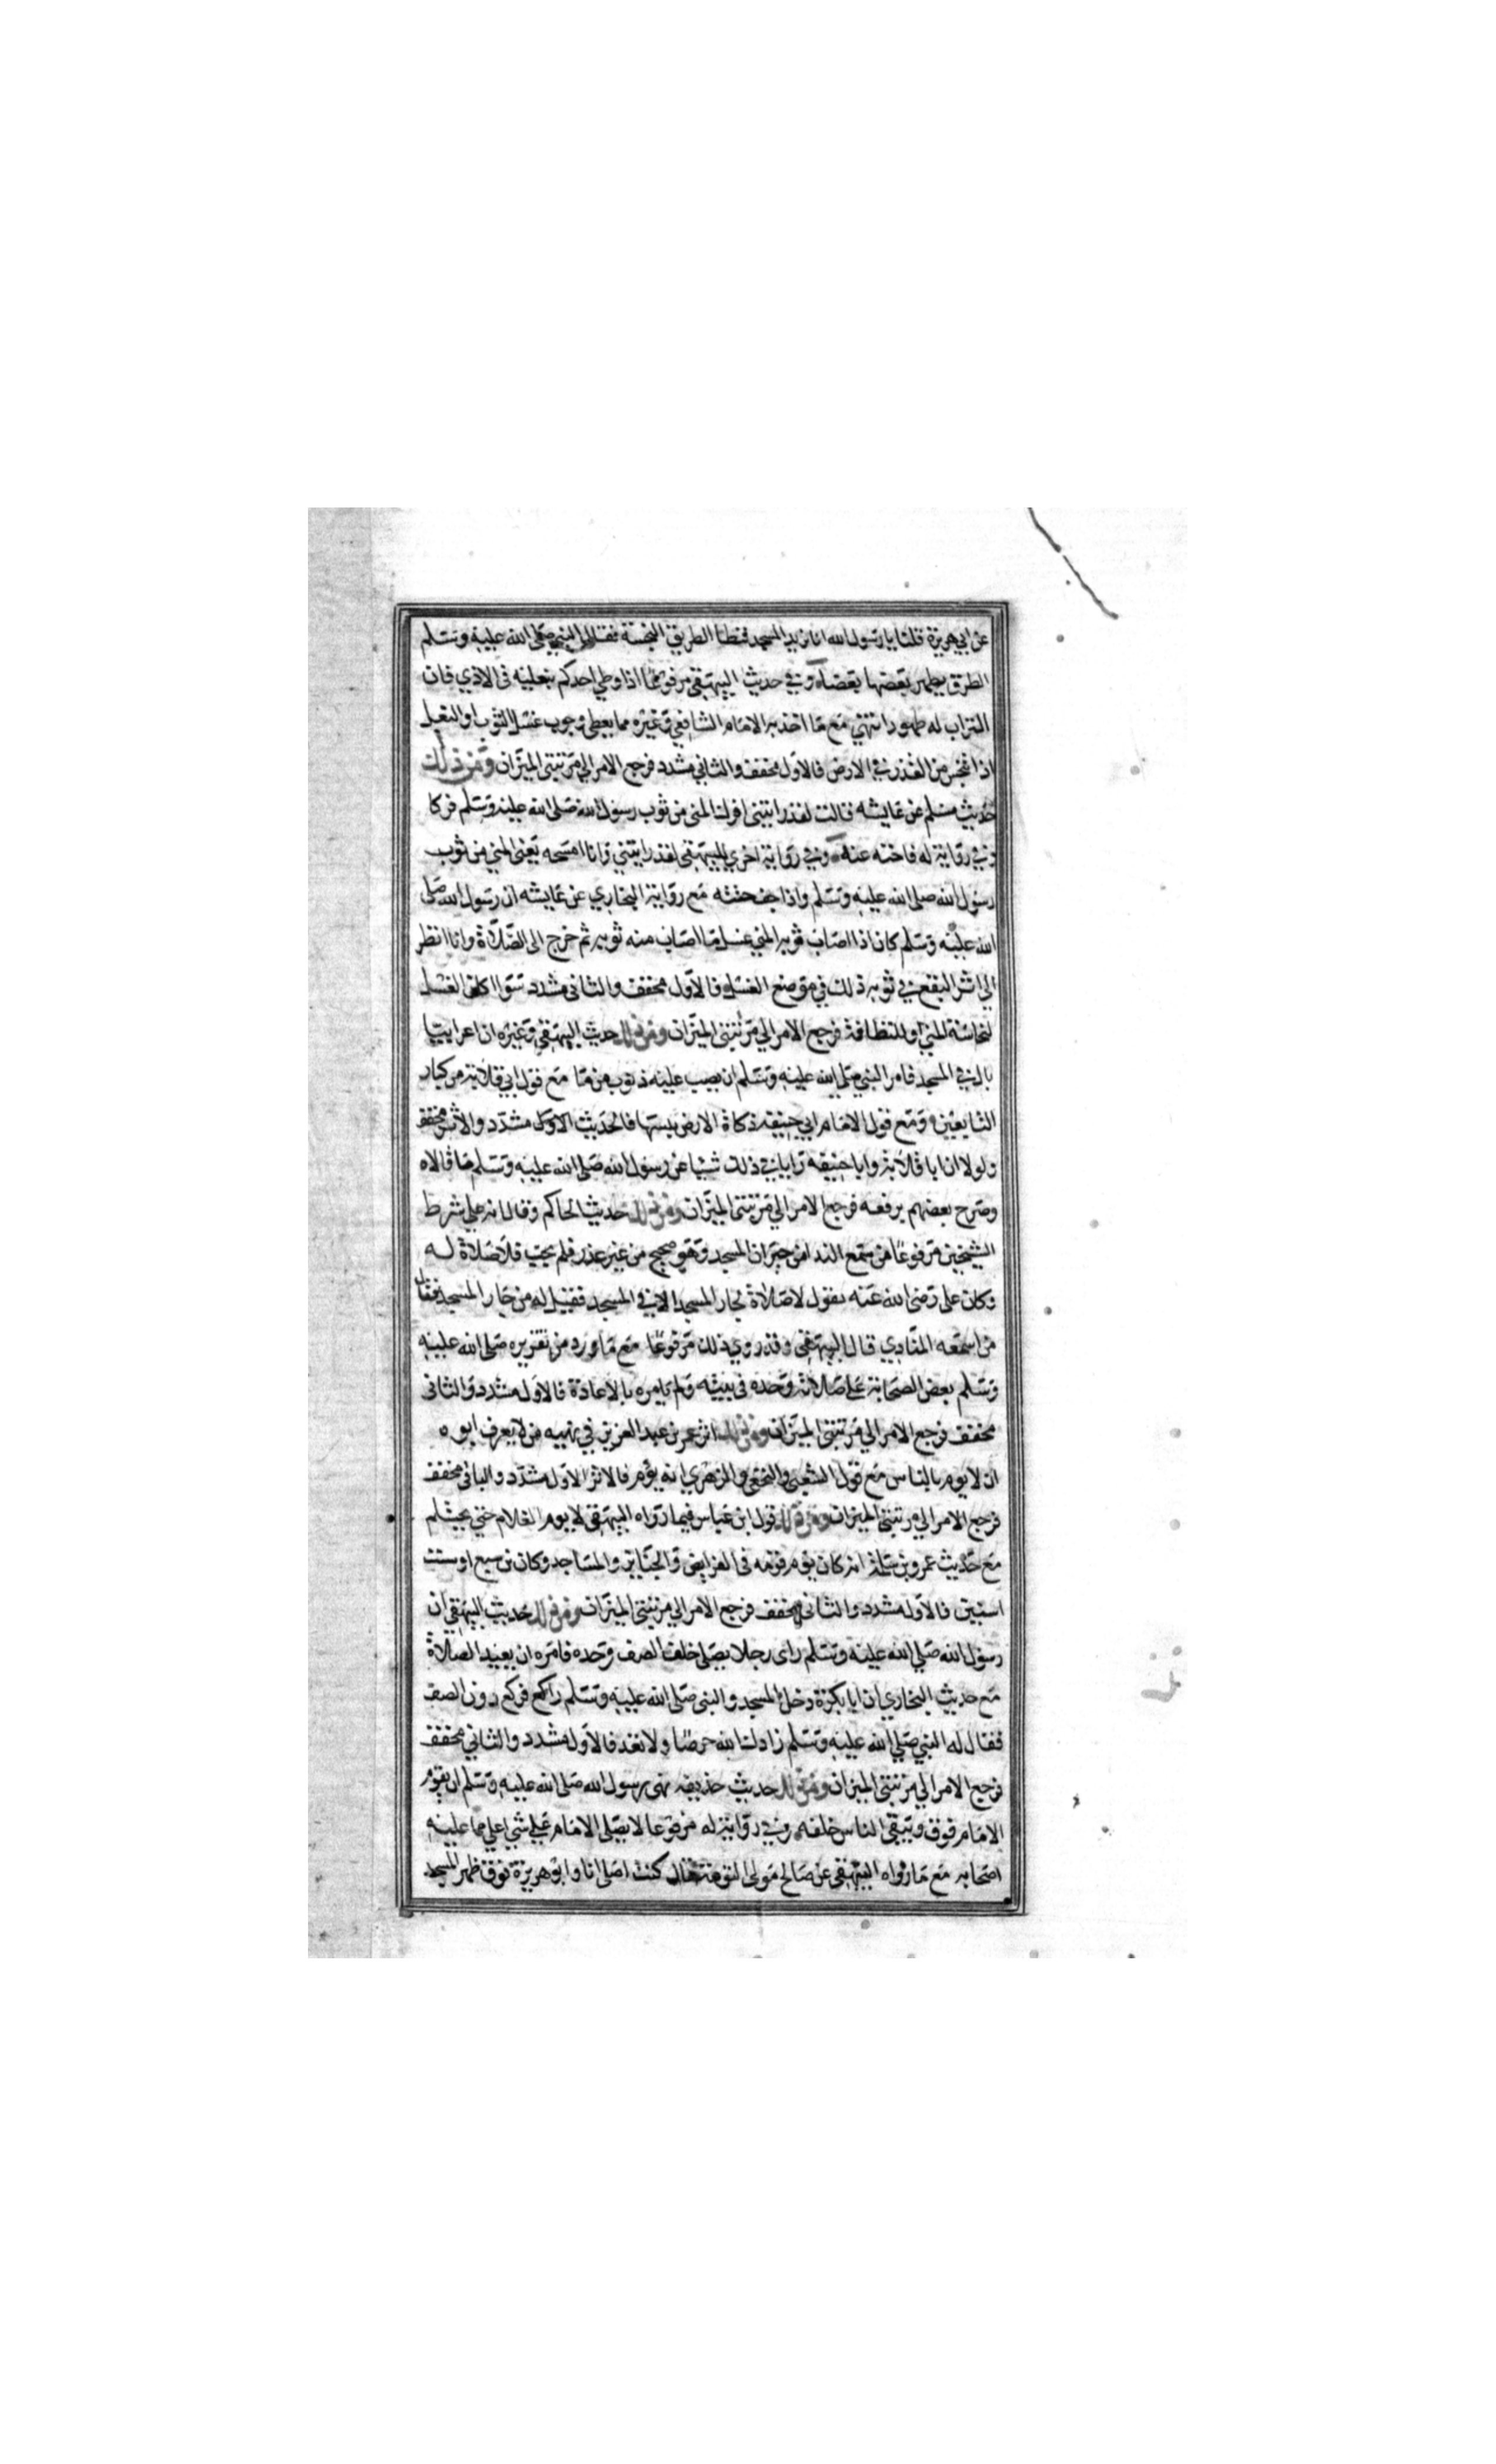 عن ابي هريرة قلنا يا رسول الله انا نريد المسجد فنطأ الطريق النجسة فقال النبي صلى الله عليه وسلم
الطرق يطهر بعضها بعضا وفي حديث البيهقي مرفوعا اذا وطي احدكم بنعليه في الاذي فان
التراب له طهور انتهي مع ما اخذ به الامام الشافعي وغيره مما يعطي وجوب غسل الثوب او النعل
اذا تنجس من القذر في الارض فالاول مخفف والثاني مشدد فرجع الامر الي مرتبتي الميزان ومن ذلك
حديث مسلم عن عايشه قالت لقد رايتني افرك المني من ثوب رسول الله صلى الله عليه وسلم فركا
وفي رواية له فاحته عنه وفي رواية اخري للبيهقي لقد رايتني وانا امسحه يعني المني من ثوب
رسول الله صلى الله عليه وسلم واذا جف حتته مع رواية البخاري عن عايشه ان رسول الله صلى
الله عليه وسلم كان اذا اصاب ثوبه المني غسل ما اصاب منه ثوبه ثم خرج الى الصلاة وانا انظر
الي اثر البقع في ثوبه ذلك في موضع الغسل فالاول مخفف والثاني مشدد سوا اكان الغسل
لنجاسة المني او للنظافة فرجع الامر الي مرتبتي الميزان ومن ذلك حديث البيهقي وغيره ان اعرابيا
بال في المسجد فامر النبي صلى الله عليه وسلم ان يصب عليه ذنوب من ما مع قول ابي قلابة من كبار
التابعين ومع قول الامام ابي حنيفه ذكاة الارض يبسها فالحديث الاول مشدد والاثر مخفف
ولولا ان ابا قلابة وابا حنيفه رايا في ذلك شيا عن رسول الله صلى الله عليه وسلم ما قالاه
وصرح بعضهم برفعه فرجع الامر الي مرتبتي الميزان ومن ذلك حديث الحاكم وقال انه علي شرط
الشيخين مرفوعا من سمع الندا من جيران المسجد وهو صحيح من غير عذر فلم يجب فلا صلاة له
وكان على رضى الله عنه يقول لا صلاة لجار المسجد الا في المسجد فقيل له من جار المسجد فقال
من اسمعه المنادي قال البيهقي وقد روي ذلك مرفوعا مع ما ورد من تقريره صلى الله عليه
وسلم بعض الصحابة على صلاته وحده في بيته ولم يامره بالاعادة فالاول مشدد والثانى
مخفف فرجع الامر الي مرتبتي الميزان ومن ذلك اثر عمر بن عبد العزيز في نهيه من لا يعرف ابوه
ان لا يوم بالناس مع قول الشعبي والنخعي والزهري انه يؤم فالاثر الاول مشدد والثاني مخفف
فرجع الامر الي مرتبتي الميزان ومن ذلك قول ابن عباس فيما رواه البيهقي لا يوم الغلام حتي يحتلم
مع حديث عمرو بن سلمة انه كان يؤم قومه في الفرايض والجنايز والمساجد وكان بن سبع او ست
اسنين فالاول مشدد والثانى مخفف فرجع الامر الي مرتبتي الميزان ومن ذلك حديث البيهقي ان
رسول الله صلى الله عليه وسلم راى رجلا يصلى خلف الصف وحده فامره ان يعيد الصلاة
مع حديث البخاري ان ابا بكرة دخل المسجد والنبى صلى الله عليه وسلم راكع فركع دون الصف
فقال له النبي صلى الله عليه وسلم زادك الله حرصا ولا تعد فالاول مشدد والثاني مخفف
فرجع الامر الي مرتبتي الميزان ومن ذلك حديث حذيفه نهى رسول الله صلى الله عليه وسلم ان يقوم
الامام فوق ويبقي الناس خلفه وفي رواية له مرفوعا لا يصلى الامام على شي اعلي مما عليه
اصحابه مع ما رواه البيهقي عن صالح مولى التومة قال كنت اصلى انا وابو هريرة فوق ظهر المسجد